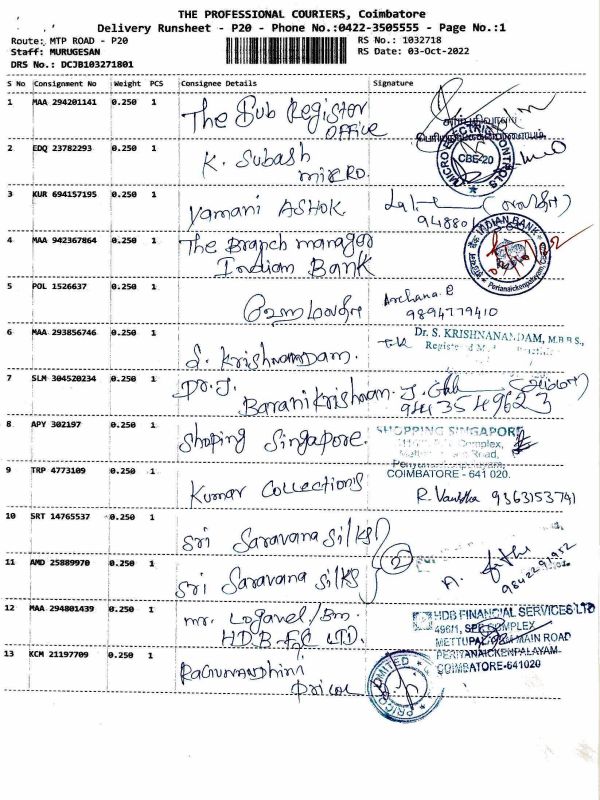 THE PROFESSIONAL COURIERS, Coimbatore
Delivery Runsheet - P20 - Phone No.:0422-3505555 - Page No.:1
Route: MTP ROAD - P20
RS No.: 1032718
Staff: MURUGESAN
RS Date: 03-Oct-2022
DRS No.: DCJB103271801
S No Consignment No Weight PCS Consignee Details Signature
1 MAA 294201141 0.250 1 The Sub Register
OFFICE
2 EDQ 23782293 0.250 1 K. Subash
micro.
MICRO ELECTRIC CONTROLS
CBE-20
3 KUR 694157195 0.250 1 yamani ASHOK
4 MAA 942367864 0.250 1 The Branch manager
Indian Bank
INDIAN BANK
5 POL 1526637 0.250 1
Archana.R
9894779410
6 MAA 293856746 0.250 1 S. Krishnamdam.
Dr. S. KRISHNANANDAM, M.B.B.S.,
7 SLM 304520234 0.250 1 Dr. J.
Baranikrishnan.
9443549623
8 APY 302197 0.250 1 Shoping Singapore.
SHOPPING SINGAPORE
Complex,
Road,
COIMBATORE - 641 020.
9 TRP 4773109 0.250 1 Kumar Collections
9363153741
10 SRT 14765537 0.250 1 Sri Saravana Silks
2
11 AMD 25889970 0.250 1 Sri Saravana Silks
12 MAA 294801439 0.250 1 mr. Loganel/Bm.
HDB-FC LTD.
HDB FINANCIAL SERVICES LTD
496/1, SPR COMPLEX
METTUPALAYAM MAIN ROAD
PERIYANAICKENPALAYAM
COIMBATORE-641020
13 KCM 21197709 0.250 1 Raghunandhini
Pricol
PRICOL LIMITED